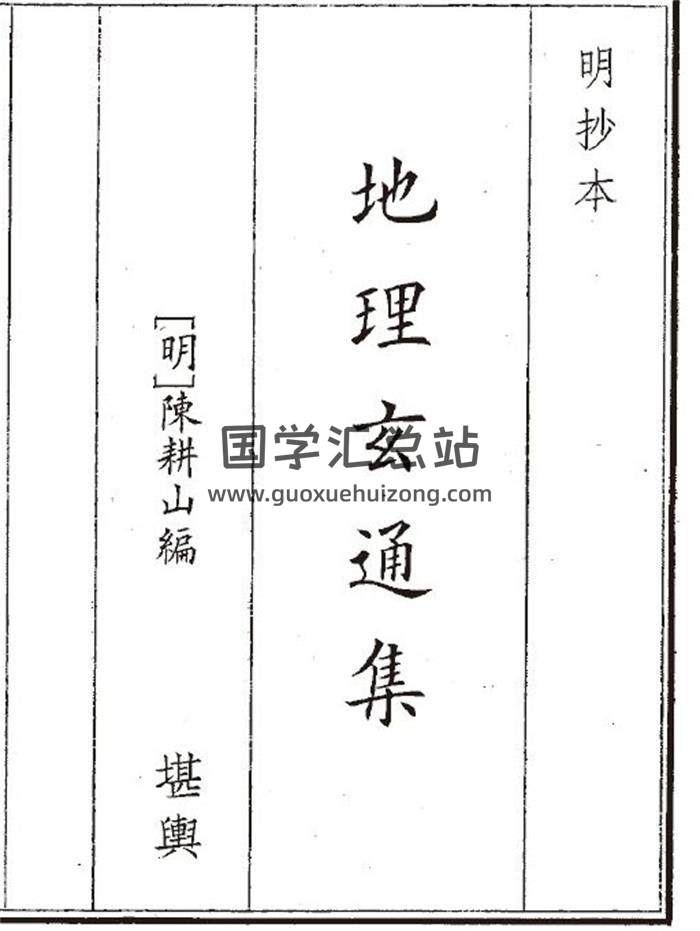 明抄本
地理玄通集
[明]陳耕山編
堪輿
国学汇总站
www.guoxuehuizong.com